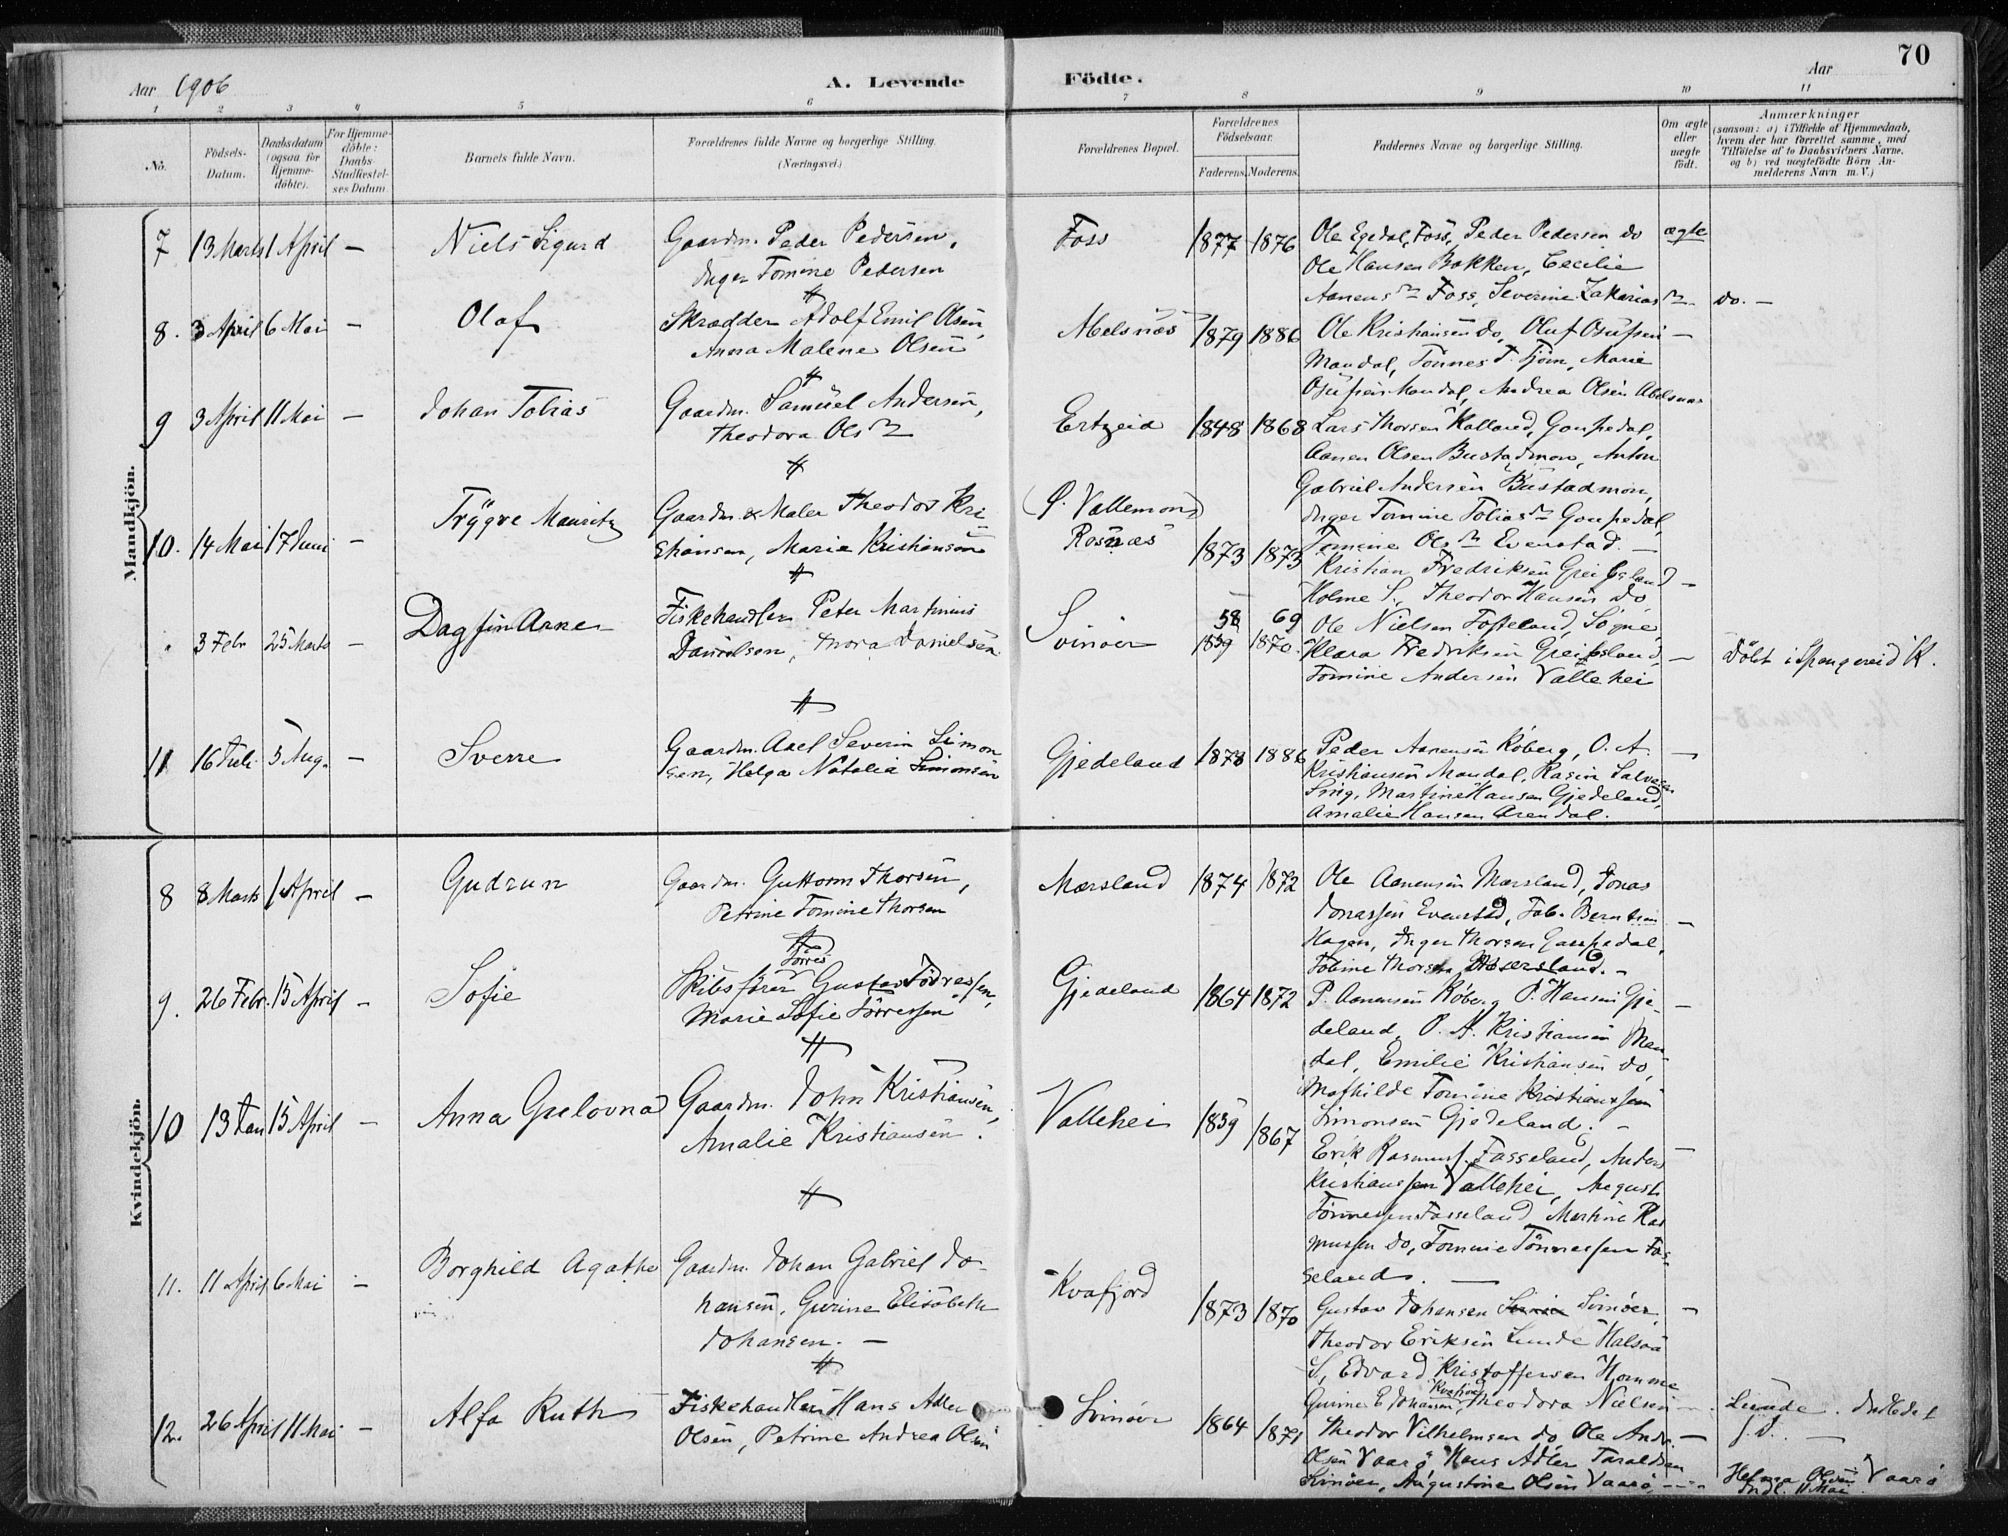 70
Aar 1906
A. Levende
Födte.
Aar
1 2 3 4 5 6 7 8 9 10 11
No.
Födsels-Datum.
Daabsdatum (ogsaa for Hjemme-döbte).
For Hjemme-döbte: Daabs-Stadfæstel-ses Datum.
Barnets fulde Navn.
Forældrenes fulde Navne og borgerlige Stilling.
(Næringsvei.)
Forældrenes Bopæl.
Forældrenes Fødselsaar.
Faderens. Moderens.
Faddernes Navne og borgerlige Stilling.
Om ægte eller uægte født.
Anmærkninger
(saasom: a) i Tilfælde af Hjemmedaab,
hvem der har forrettet samme, med
Tilföielse af to Daabsvidners Navne,
og b) ved uægtefödte Börn An-
melderens Navn m. V.)
Mandkjön.
7 13 Marts 1 April — Niels Sigurd
Gaardm. Peder Pedersen,
Inger Tomine Pedersen
Foss 1877 1876
Ole Egedal, Foss, Peder Pedersen do ægte
Ole Hansen Bakken, Cecilie
Aanens Foss, Severine Zakarias do. —
8. 3 April 6 Mai — Olaf
Skrædder Adolf Emil Olsen,
Anna Malene Olsen
Abelsnæs 1879 1886
Ole Kristiansen do, Oluf —
Mandal, Tönnes T. Tjöm, Marie
Mandal, Andrea Olsen Abelsnæs
9 3 April 11 Mai — Johan Tobias
Gaardm. Samuel Andersen,
Theodora Ols
Ertzeid 1848 1868
Lars Thorsen Kalland, Gaupedal,
Aanen Olsen Bustadmon, Anton
Gabriel Andersen Bustadmon,
Inger Tomine Tobias Gaupedal,
Tomine Ols Evenstad. —
10. 14 Mai 17 Juni — Trygve Mauritz
Gaardm. & Maler Theodor Kri
stiansen, Marie Kristiansen
(P. Vallemon)
Rosnæs 1873 1873
Kristian Fredriksen Greibsland —
Holme S., Theodor Hansen do
" 3 Febr 25 Marts — Dagfin Arne
Fiskehandler Peter Martinius
Danielsen, Thora Danielsen
Svinöer 58 69
1859 1870.
Ole Nielsen Fosseland, Sögne,
Klara Fredriksen Greibsland, —
Tomine Andersen Vallehei
Döbt i Spangereid K.
11 16 Juli 5 Aug. — Sverre
Gaardm. Axel Severin Simon
sen, Helga Natalia Simonsen
Gjedeland 1878 1886
Peder Aanensen Köberg, O. A. —
Kristiansen Mandal, Rasin Salvesen
Sing, Martine Hansen Gjedeland,
Amalie Hansen Arendal.
Kvindekjön.
8 8 Marts 1 April — Gudrun
Gaardm. Guttorm Thorsen,
Petrine Tomine Thorsen
Marsland 1874 1872
Ole Aanensen Marsland, Jonas
Jonassen Evenstad, Tob. Berntsen —
Hagen, Inger Thorsen Gaupedal,
Tobine Thorsen Marsland. —
9. 26 Febr. 15 April — Sofie
Törres
Skibsförer Gustav Tödressen,
Marie Sofie Törressen
Gjedeland 1864 1872
P. Aanensen Köberg P. Hansen Gje- —
deland, O. A. Kristiansen Man
dal, Emilie Kristiansen do,
Mathilde Tomine Kristianssen
Simonsen Gjedeland. —
10 13 Jan 15 April — Anna Gulovna
Gaardm. John Kristiansen,
Amalie Kristiansen.
Vallehei 1859 1867
Erik Rasmuss. Fasseland, Anders —
Kristianssen Vallehei, August
Tönnessen Fasseland Martine Ras
mussen do, Tomine Tönnessen Fas
seland. —
11. 11 April 6 Mai — Borghild Agathe
Gaardm. Johan Gabriel Jo-
hansen, Gurine Elisabeth
Johansen. —
Kvafjord 1873 1870
Gustav Johansen Svinöer, —
Theodor Eriksen Lunde Halsaa
S, Edvard Kristoffersen Homme
Kvafjord
Gurine E Johansen, Theodora Nielsen — Lunde. Indledet
s. D. —
12. 26 April 11 Mai — Alfa Ruth
Fiskehandler Hans Adler
Olsen, Petrine Andrea Olsen
Svinöer 1864 1871
Theodor Vilhelmsen do Ole Andr. —
Olsen Vaarö Hans Adler Taraldsen
Svinöer, Augustine Olsen Vaarö,
Helma Olsen Vaarö
Indl. 11 Mai